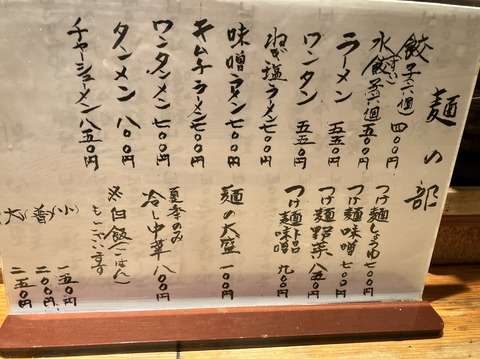 麺の部
餃子(六個) 四00円
水餃子(六個) 五00円
ラーメン 五五0円
ワンタン 五五0円
ねぎ塩ラーメン 七00円
味噌ラーメン 七00円
キムチラーメン 七00円
ワンタンメン 七00円
タンメン 八00円
チャーシューメン 八五0円
つけ麺しょうゆ 七00円
つけ麺味噌 七00円
つけ麺野菜 八五0円
つけ麺味噌 九00円
麺の大盛 一00円
夏季のみ
冷し中華 八00円
※白飯(ごはん)
もございます
(小) 一五0円
(普) 二00円
(大) 二五0円